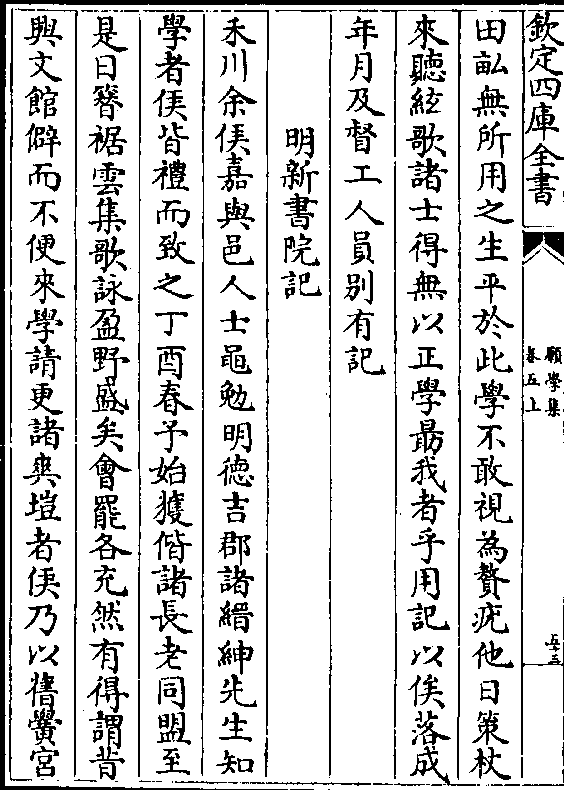 欽定四庫全書
願學集
卷五上
五十三
田畝無所用之生平於此學不敢視為贅疣他日策杖
來聽絃歌諸士得無以正學朂我者乎用記以俟落成
年月及督工人員別有記
明新書院記
禾川余侯嘉與邑人士黽勉明德吉郡諸縉紳先生知
學者侯皆禮而致之丁酉春予始獲偕諸長老同盟至
是日簪裾雲集歌詠盈野盛矣會罷各充然有得謂昔
興文館僻而不便來學請更諸爽塏者侯乃以舊黌宮